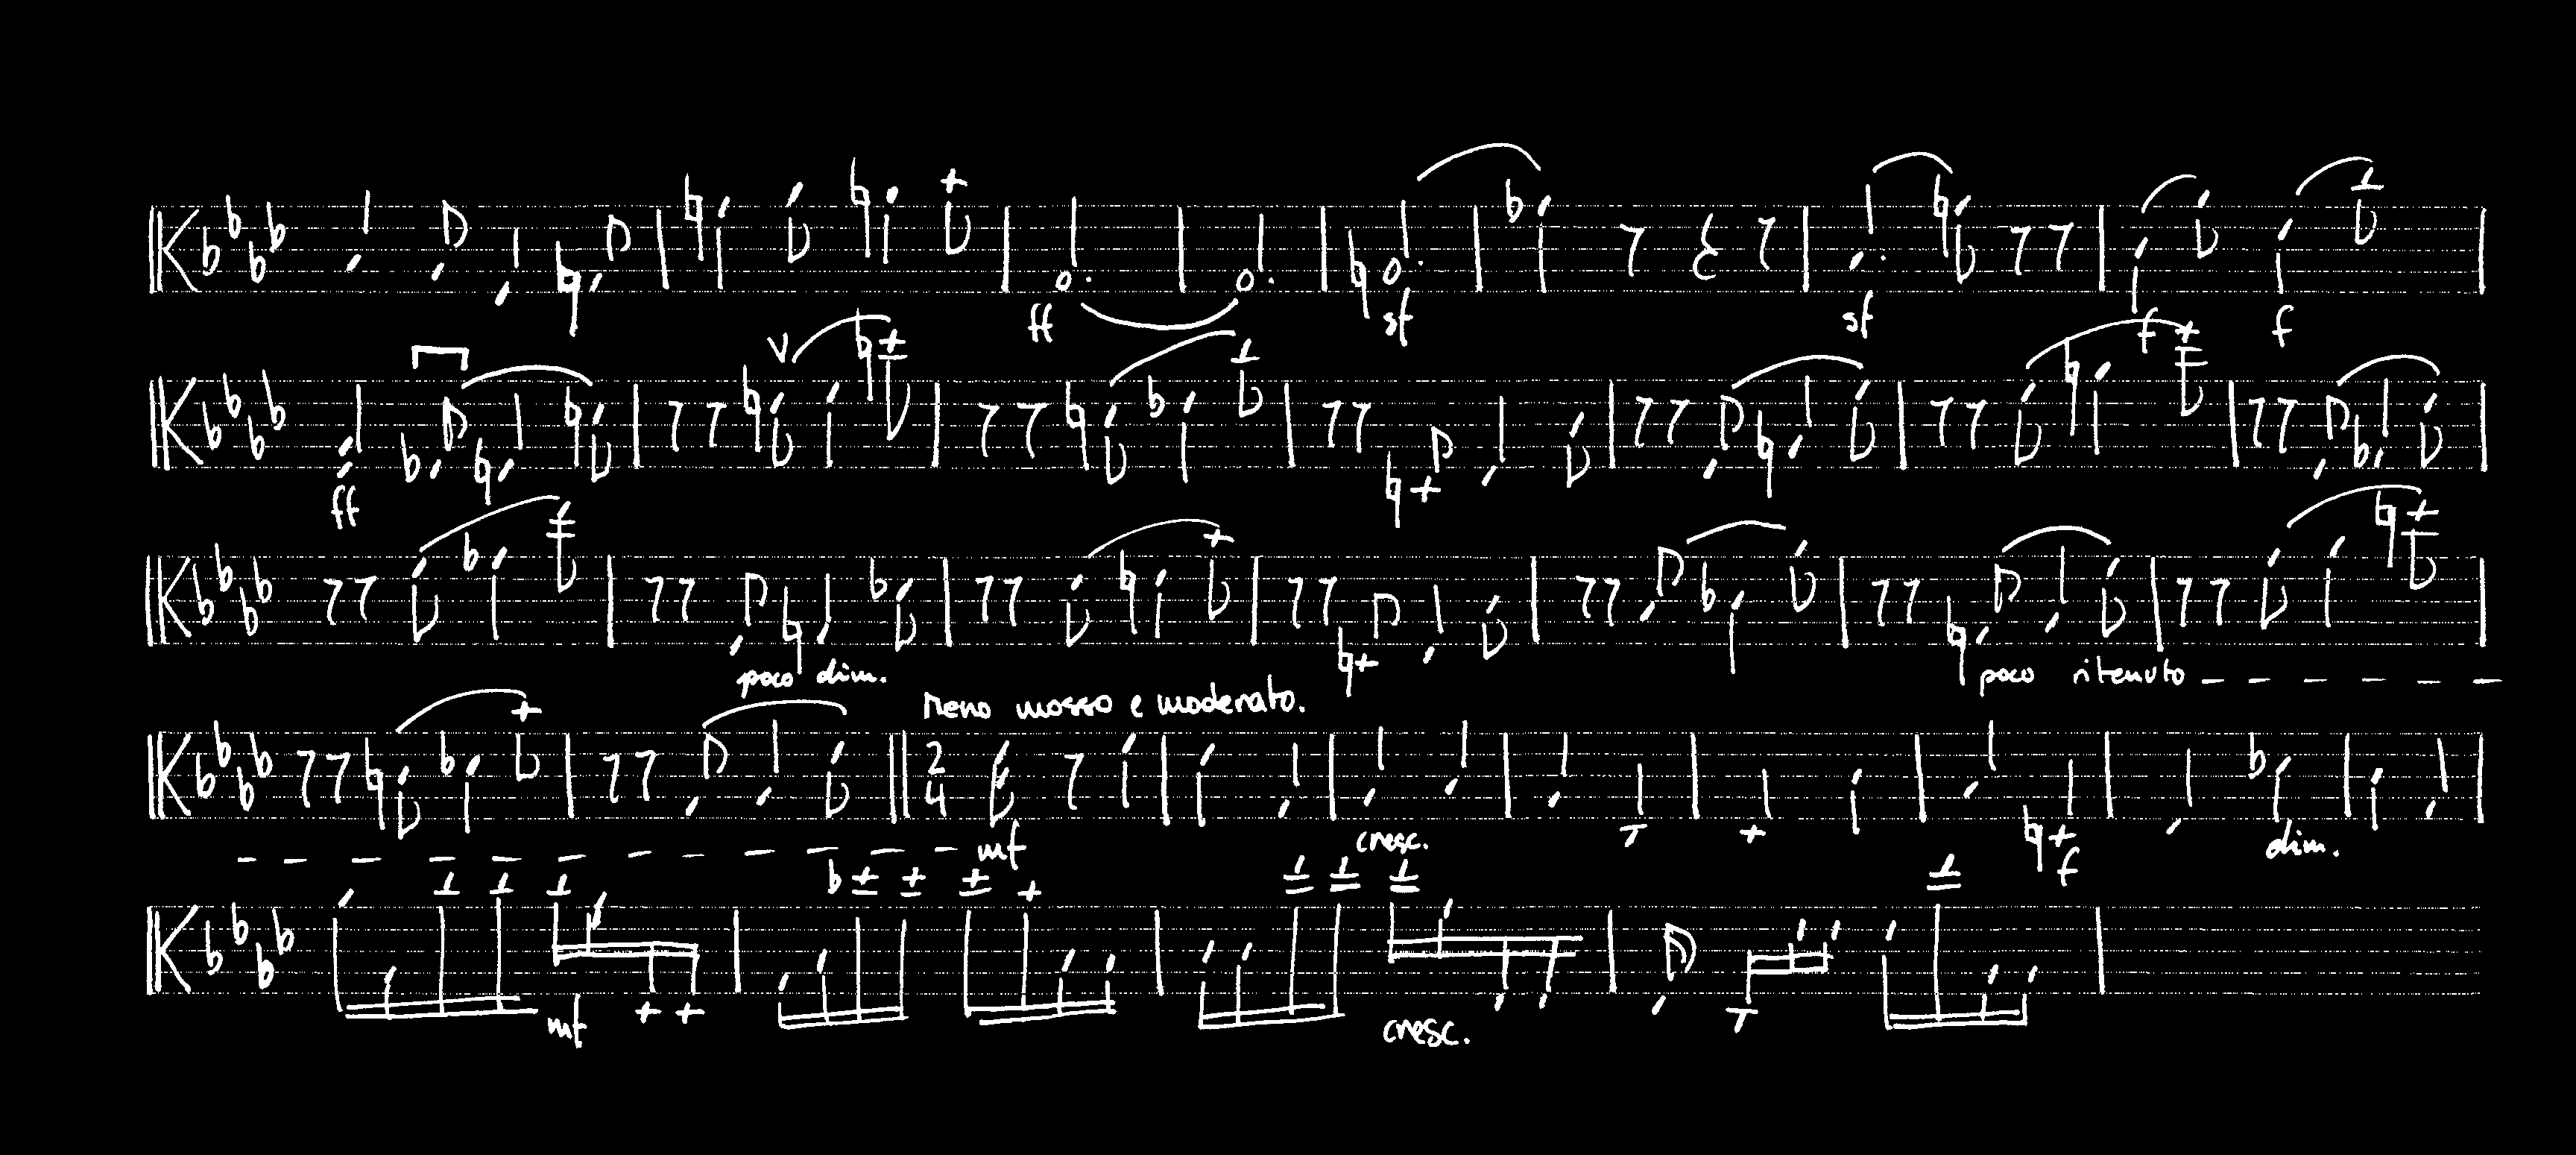 ff sf sf f f
V
ff
poco dim. poco ritenuto
Meno mosso e moderato.
2
4
mf cresc. f dim.
mf cresc.